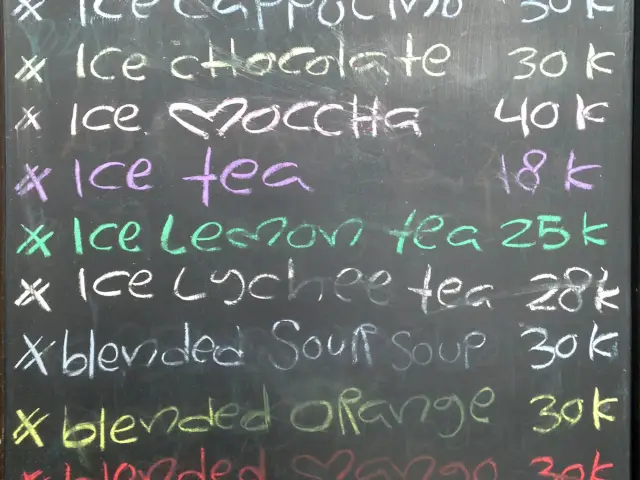 x Ice cappucino 30k
x Ice cHocolate 30k
x Ice moccHa 40k
x Ice tea 18k
x Ice Lemon tea 25k
x Ice Lychee tea 28k
x blended SouR soup 30k
x blended ORange 30k
x blended mango 30k